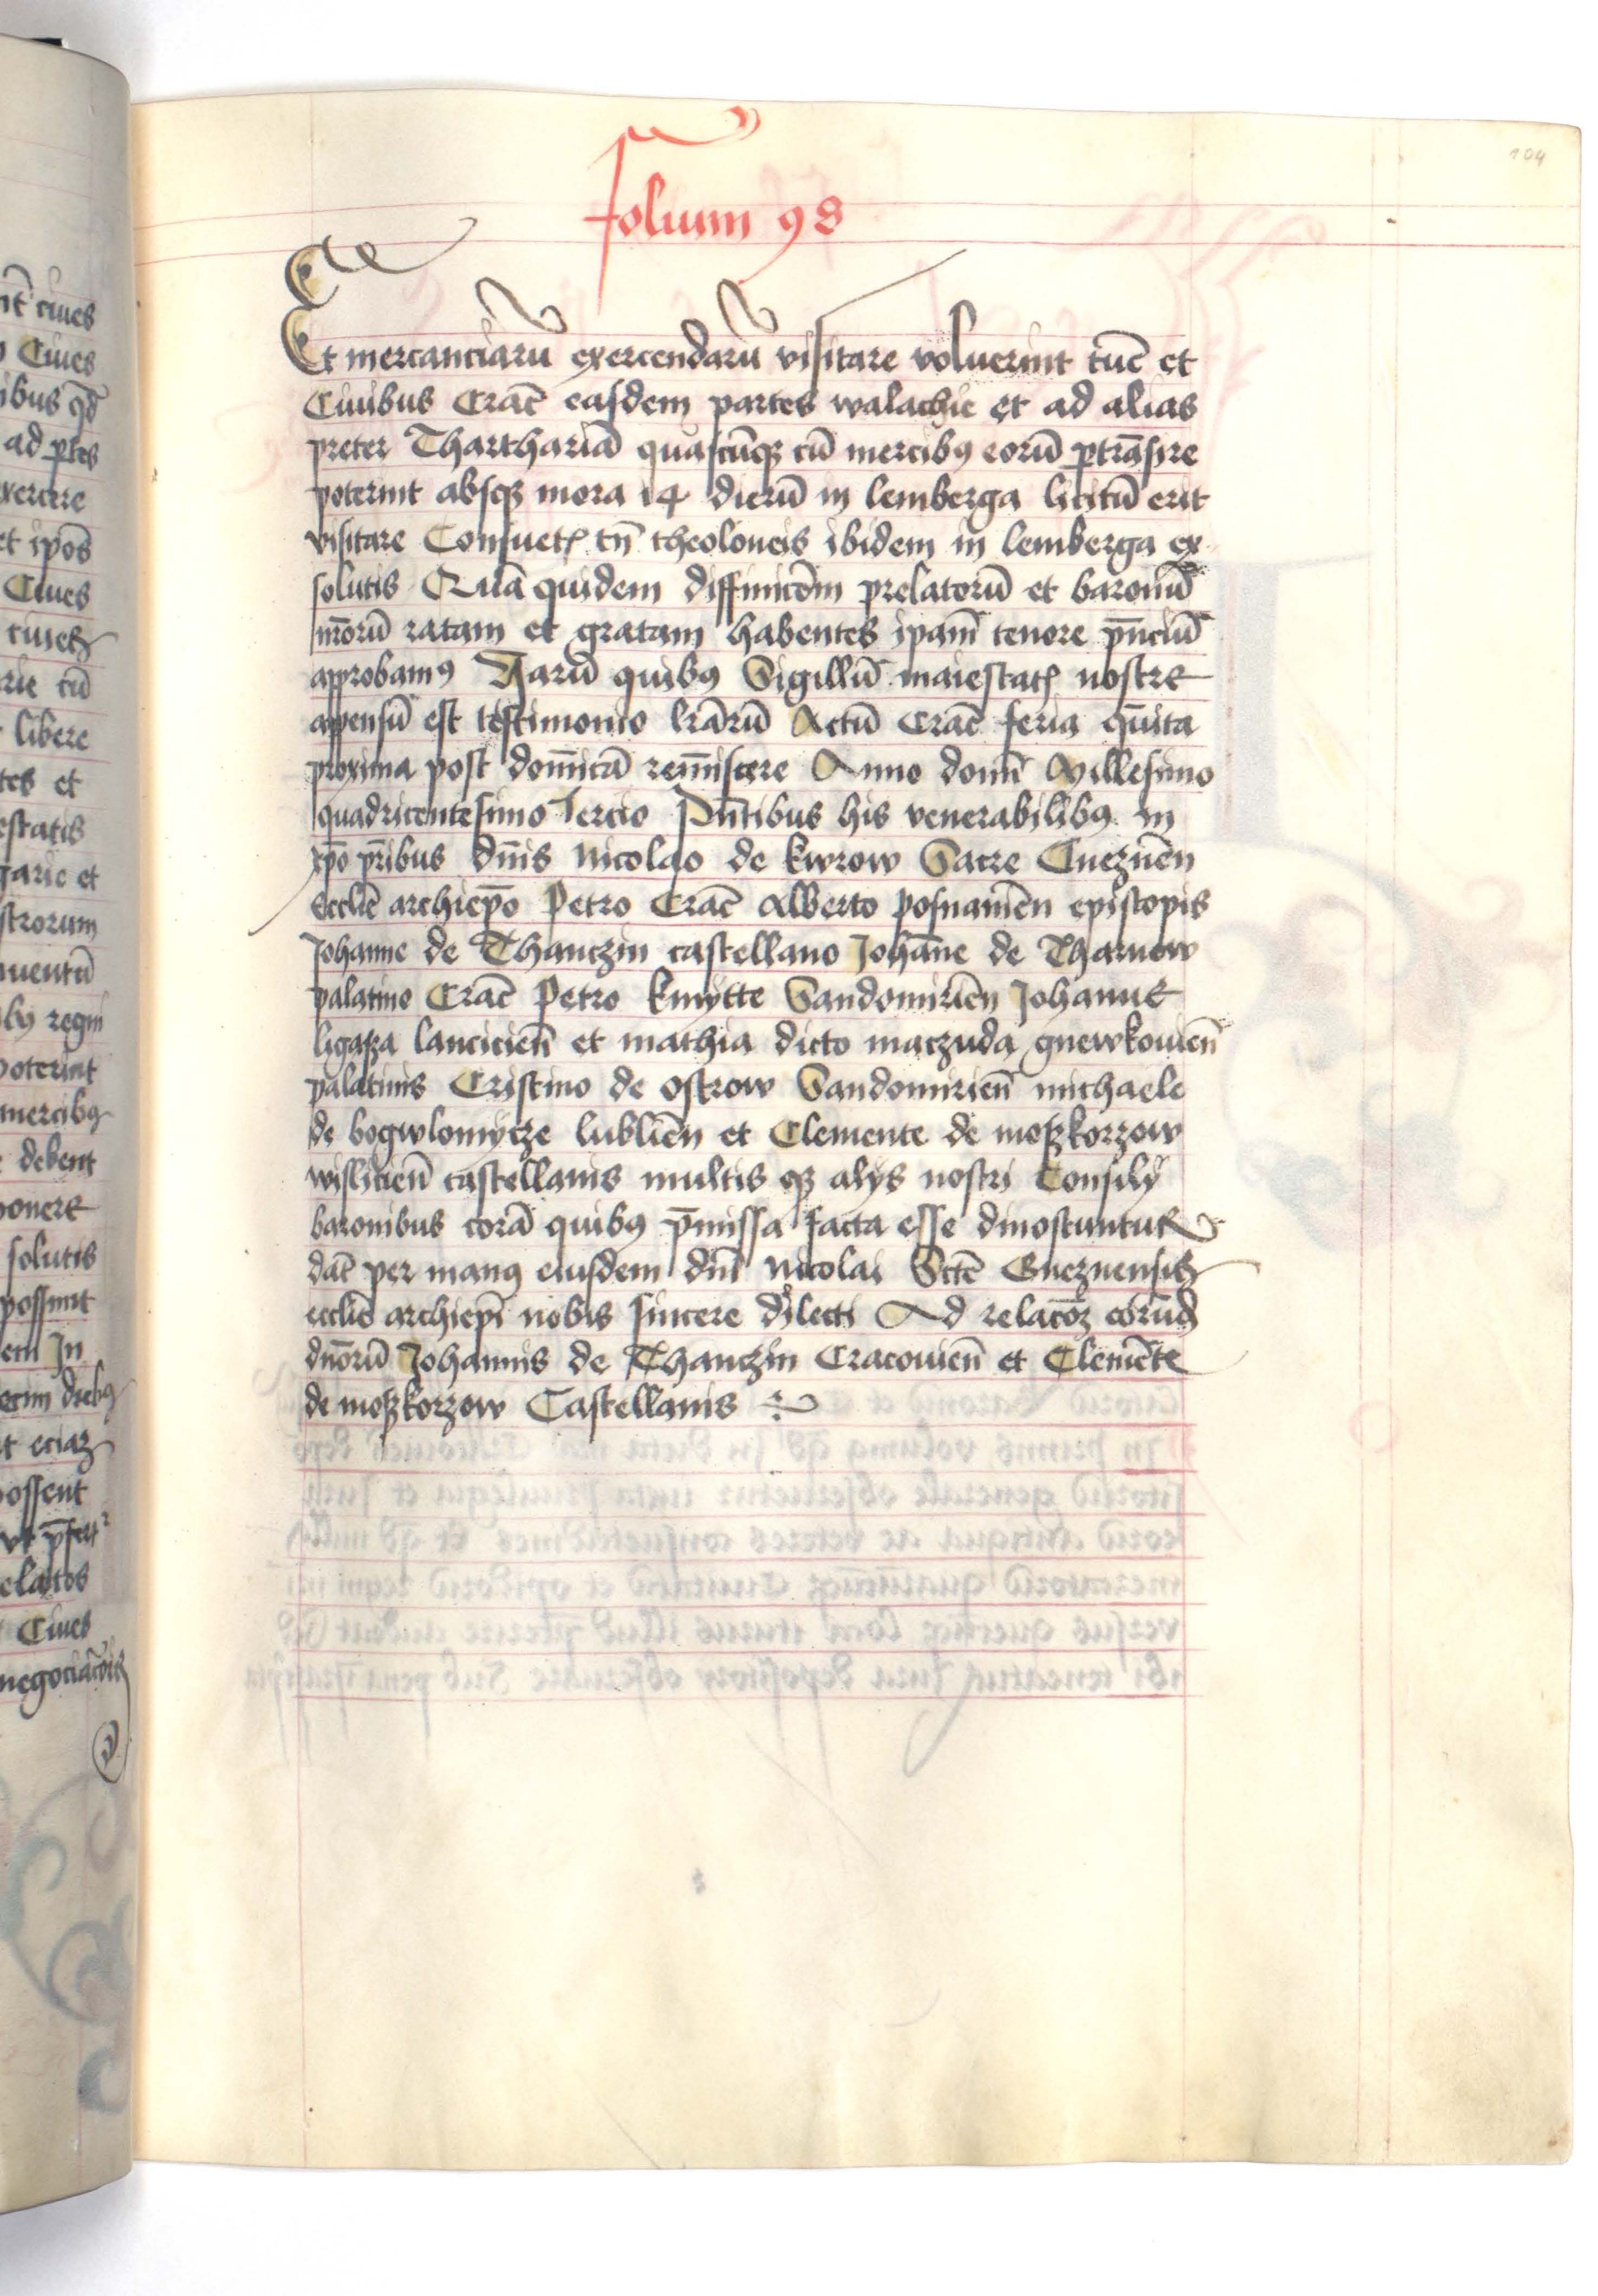 104
folium 98
Et mercanciarū exercendarū visitare voluerint tūc et
Ciuibus Crac̄ easdem partes walachie et ad alias
preter Tharthariā quascūqȝ cū mercibꝰ eorū ꝑtrāsire
poterint absqȝ mora 14 dierū in lemberga licitū erit
visitare Consuetꝭ tn̄ theoloneis ibidem in lemberga ex
solutis Quā quidem diffinicōm prelatorū et baronū
nr̄orū ratam et gratam habentes ipam̄ tenore pn̄ciū
approbamꝰ Harū quibꝰ Sigillū maiestatꝭ nostre
appensū est testimonio lrārū Actū Crac̄ feria qn̄ita
proxima post domīcā remīscere Anno domī Millesimo
quadricentesimo Tercio Pn̄tibus his venerabilibꝰ in
xp̄o pr̄ibus dn̄is Nicolao de kwrow Sacre Gneznēn
Ecclīe archiep̄o Petro Crac̄ Alberto posnaniēn episcopis
Johanne de Thanczin castellano Johāne de Tharnow
palatino Crac̄ Petro kmytte Sandomiriēn Johanne
ligaza lancicien̄ et mathia dicto maczuda gnewkouien̄
palatinis Cristino de ostrow Sandomirien̄ michaele
de bogwlomycze lubliēn et Clemente de moszkorzow
wislicien̄ castellanis multis qȝ alys nostri Consily
baronibus corā quibꝰ p̄missa facta esse dinoscuntur
dat̄ per manꝰ eiusdem dn̄i Nicolai Sctē Gneznensis
ecclīe archiep̄i nobis sincere dilecti Ad relacōȝ eorūd
dn̄orū Johannis de Thanczin Cracouien̄ et Clemēte
de moszkorzow Castellanis